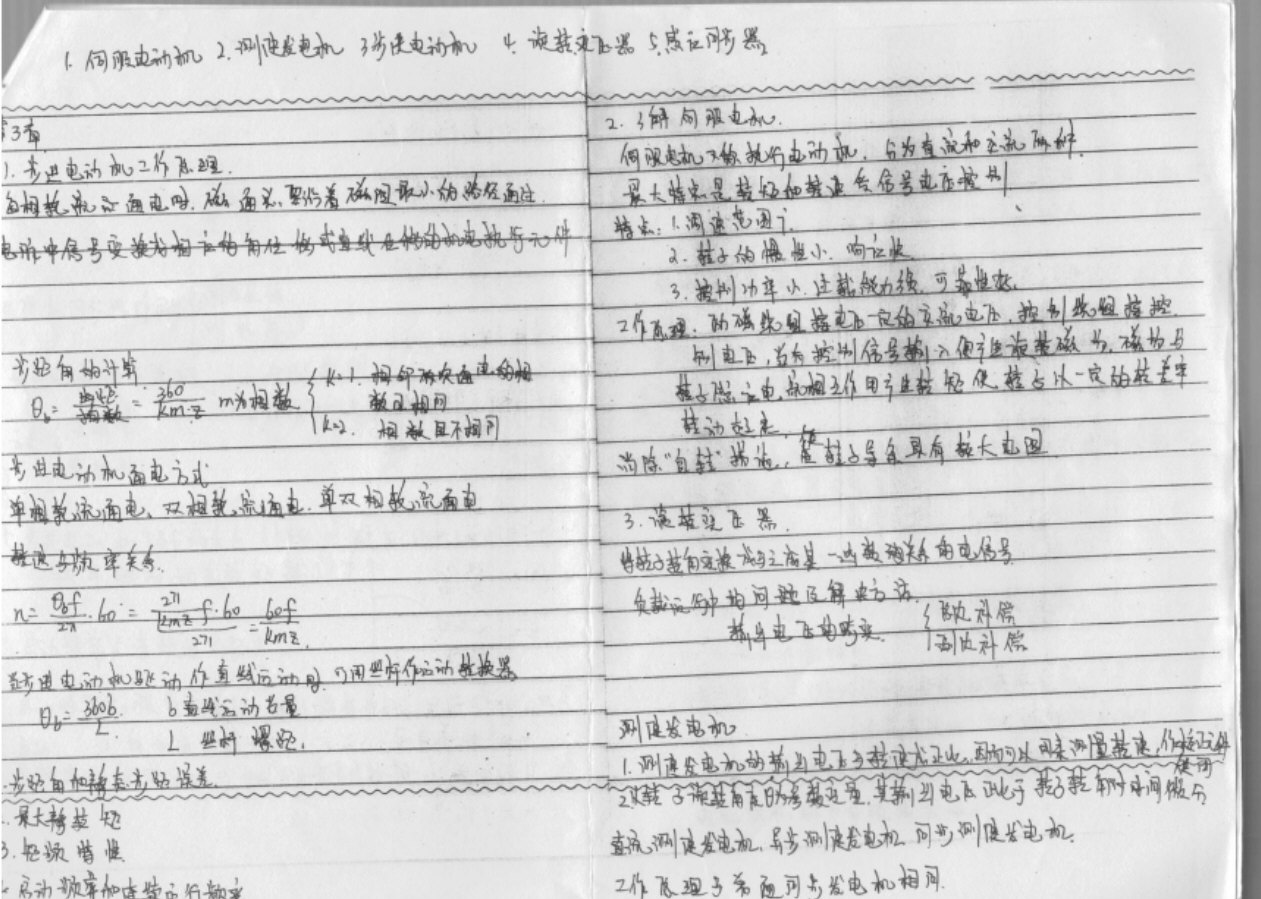 1. 伺服电动机 2. 测速发电机 3步进电动机 4. 旋转变压器 5. 感应同步器
第3章
1. 步进电动机工作原理.
当相数流过通电时, 磁通总要沿着磁阻最小的路径通过.
电脉冲信号变换为相应的角位移或直线位移的机电执行元件
步距角的计算
θb = 齿距/拍数 = 360/km·z m为相数
k=1. 相邻两次通电的相数目相同
k=2. 相数目不相同
步进电动机通电方式
单相轮流通电、双相轮流通电. 单双相轮流通电
转速与频率关系.
n = θbf/2π · 60 = 2π/kmz f·60 / 2π = 60f/kmz
若步进电动机驱动作直线运动时, 可用丝杆作运动转换器
θb = 360b/L b 直线运动当量
L 丝杆 螺距.
步距角和静态步距误差
2. 最大静转矩
3. 矩频特性
4. 启动频率和连续运行频率
2. 了解伺服电机.
伺服电机又称执行电动机, 分为直流和交流两种.
最大特点是转矩和转速受信号电压控制
特点: 1. 调速范围广.
2. 转子的惯性小. 响应快
3. 控制功率小. 过载能力强. 可靠性好.
工作原理. 励磁绕组接电压一定的交流电压, 控制绕组接控
制电压, 当有控制信号输入便产生旋转磁场, 磁场与
转子感应电流相互作用产生转矩使转子以一定的转差率
转动起来
消除“自转”措施, 使转子导条具有较大电阻
3. 旋转变压器.
将转子转角变换成与之成某一函数关系的电信号
负载运行中的问题及解决方法.
输出电压的畸变. 原边补偿
副边补偿
测速发电机
1. 测速发电机的输出电压与转速成正比, 因而可以用来测量转速, 作校正元件使用
2. 以转子旋转角度为参数变量, 其输出电压正比于转子转角对时间微分
直流测速发电机, 异步测速发电机 同步测速发电机.
工作原理与普通同步发电机相同.